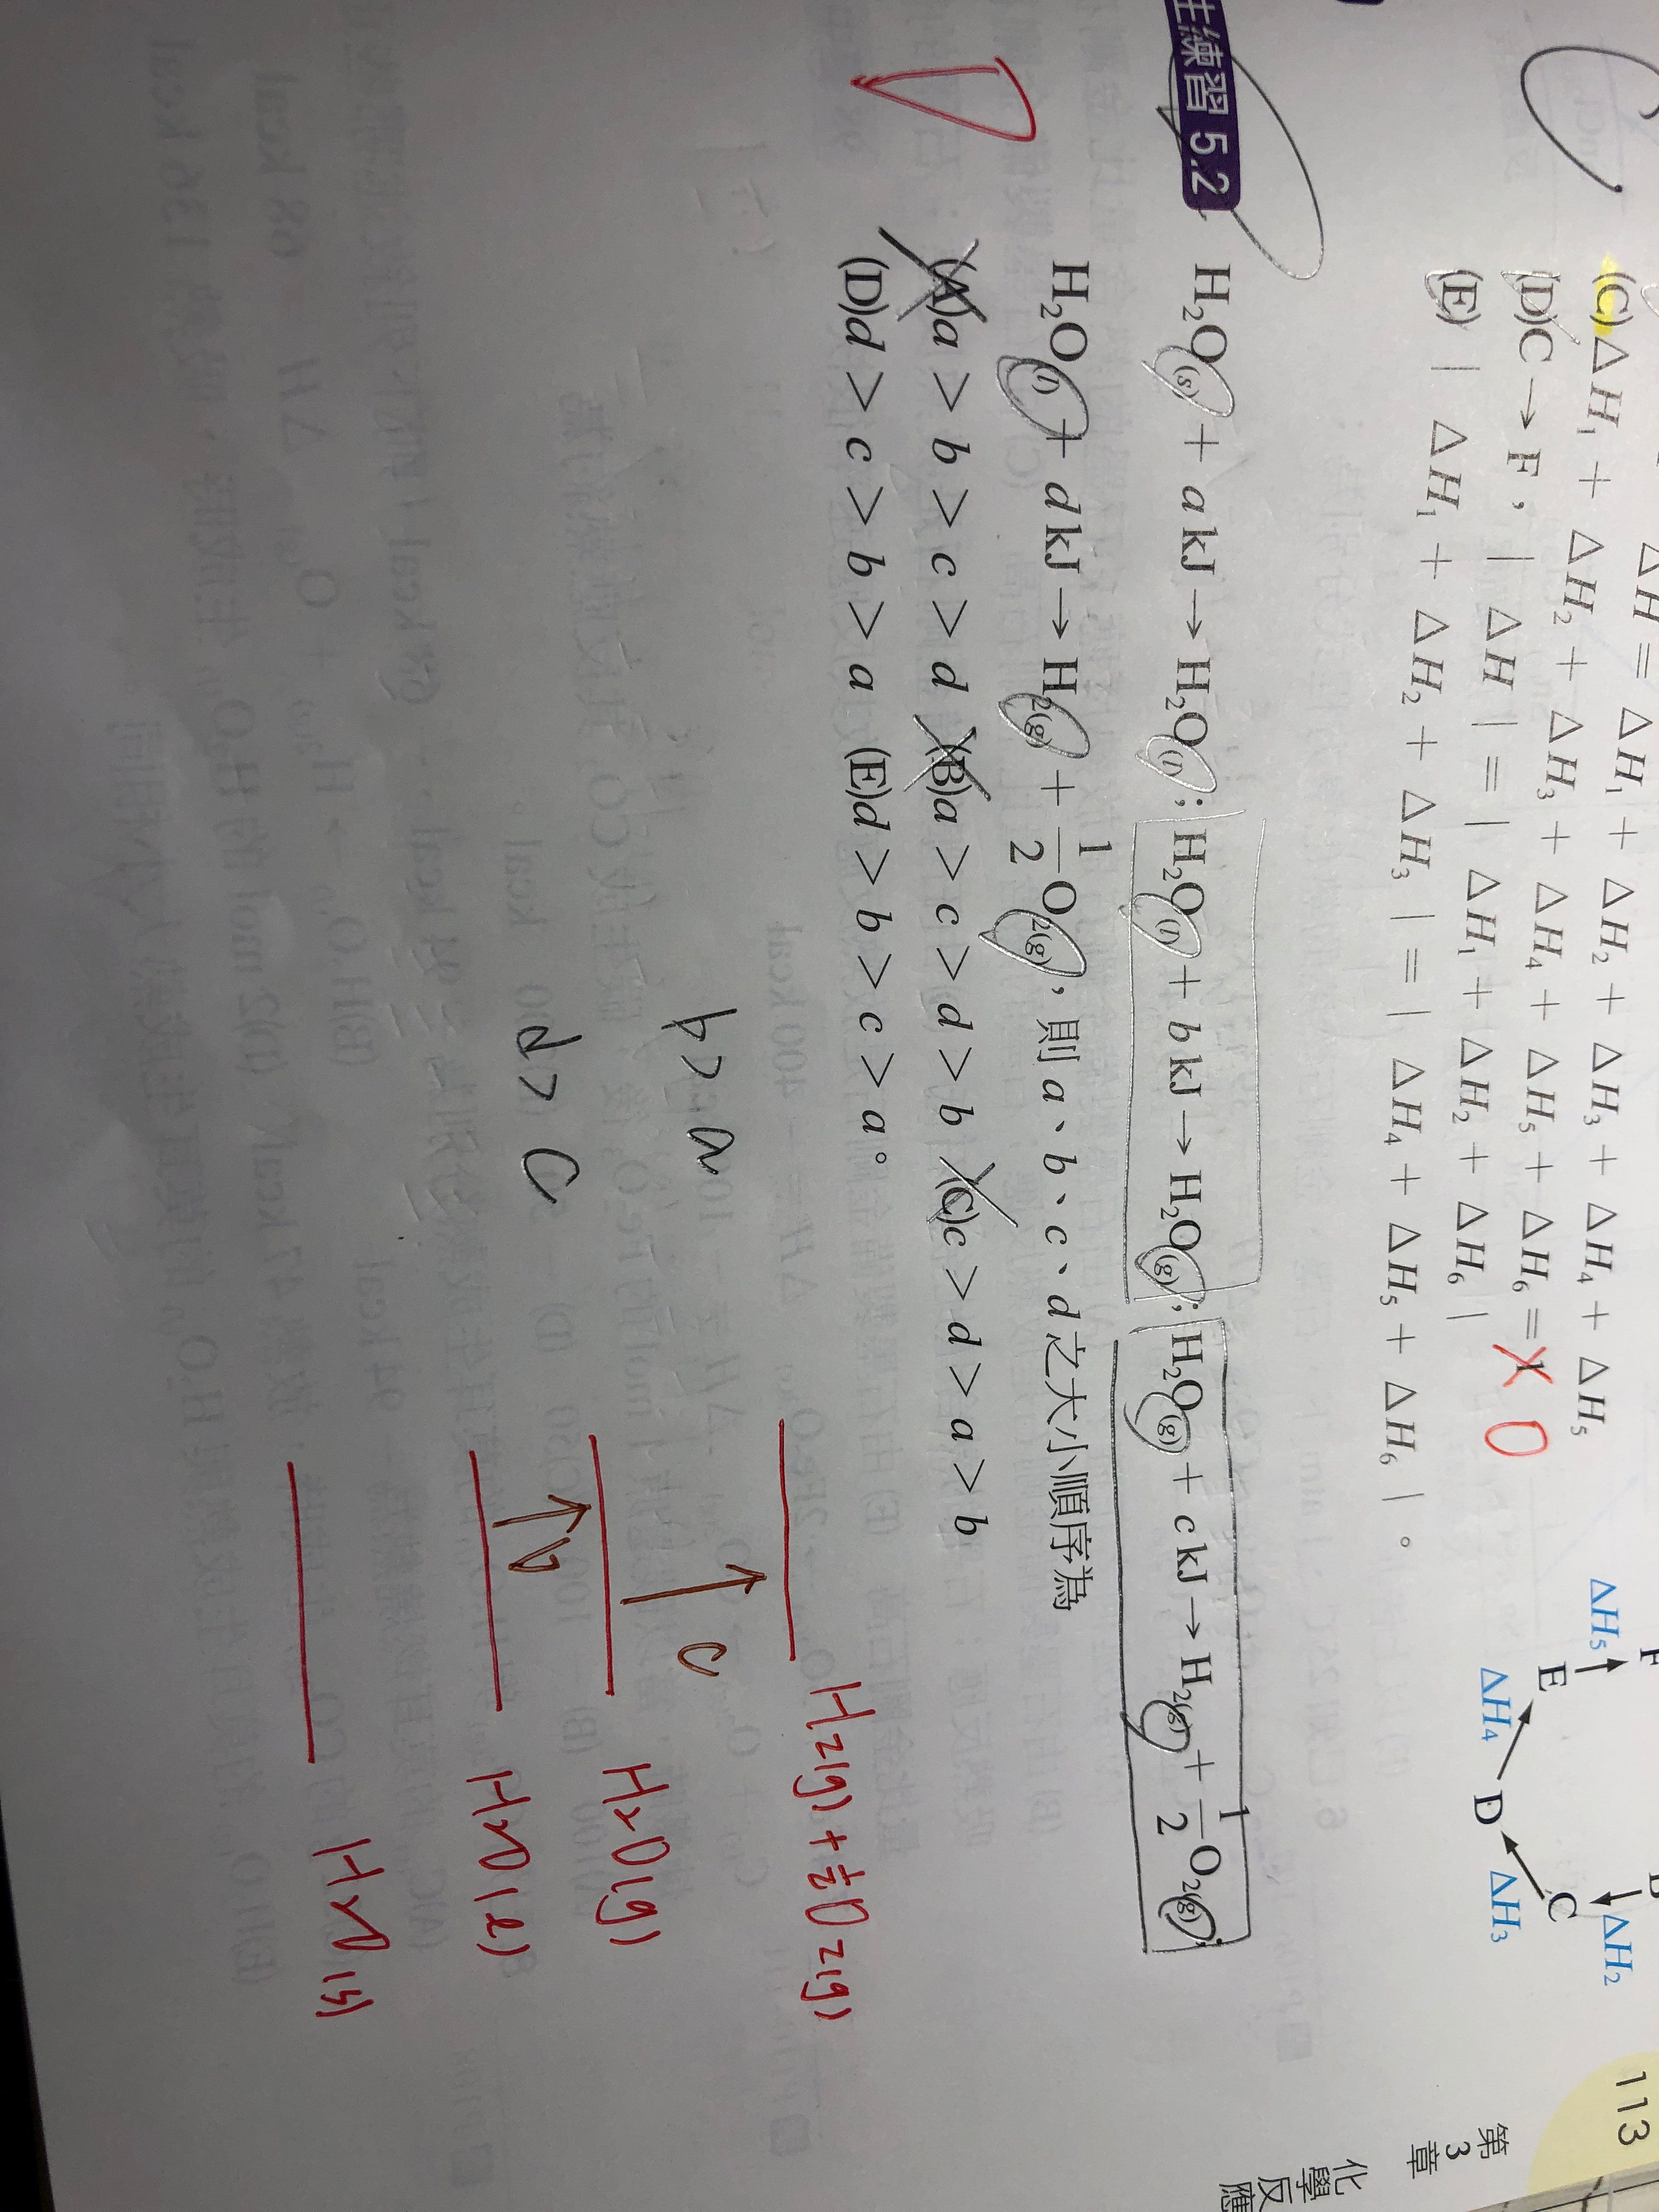 ΔH = ΔH₁ + ΔH₂ + ΔH₃ + ΔH₄ + ΔH₅
(C)ΔH₁ + ΔH₂ + ΔH₃ + ΔH₄ + ΔH₅ + ΔH₆ = X 0
(D)C → F，| ΔH | = | ΔH₁ + ΔH₂ + ΔH₆ |
(E) | ΔH₁ + ΔH₂ + ΔH₃ | = | ΔH₄ + ΔH₅ + ΔH₆ |。
ΔH₂
ΔH₅ E C
ΔH₄ D ΔH₃
113
第3章 化學反應
練習 5.2 H₂O(s) + a kJ → H₂O(l)；H₂O(l) + b kJ → H₂O(g)；H₂O(g) + c kJ → H₂(g) + 1/2 O₂(g)；
H₂O(l) + d kJ → H₂(g) + 1/2 O₂(g)，則 a、b、c、d 之大小順序為
(A)a > b > c > d (B)a > c > d > b (C)c > d > a > b
(D)d > c > b > a (E)d > b > c > a。
D
b > a
d > c
H₂(g) + 1/2 O₂(g)
c
H₂O(g)
b
H₂O(l)
H₂O(s)